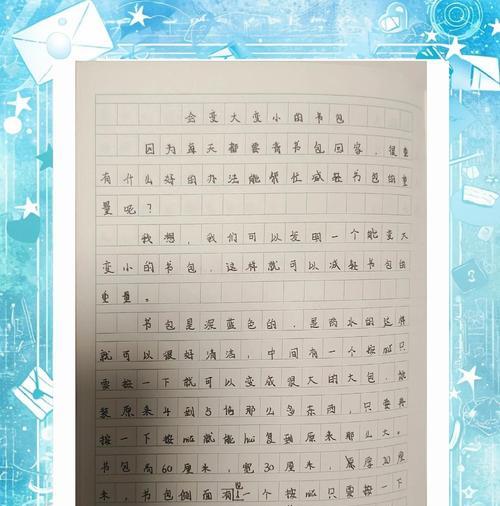 会变大变小的书包
因为每天都要背书包回家，很重
有什么好的办法能帮忙减轻书包的重
量呢？
我想，我们可以发明一个能变大
变小的书包，这样就可以减轻书包的
重量。
书包是深蓝色的，是防水的这样
就可以很好清洁，中间有一个按niǔ只
要按一下就可以变成很大的大包，能
装原来4到5倍那么多东西，只要再
按一下按niǔ就能hui复到原来那么大。
书包高60厘米，宽30厘米，厚20厘
米，书包侧面有一个按niǔ只需要按一下